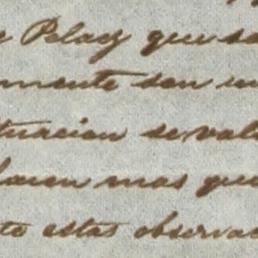 e Pelay que se
mente son un
tuacion se vale
hacen mas que
to estas observac